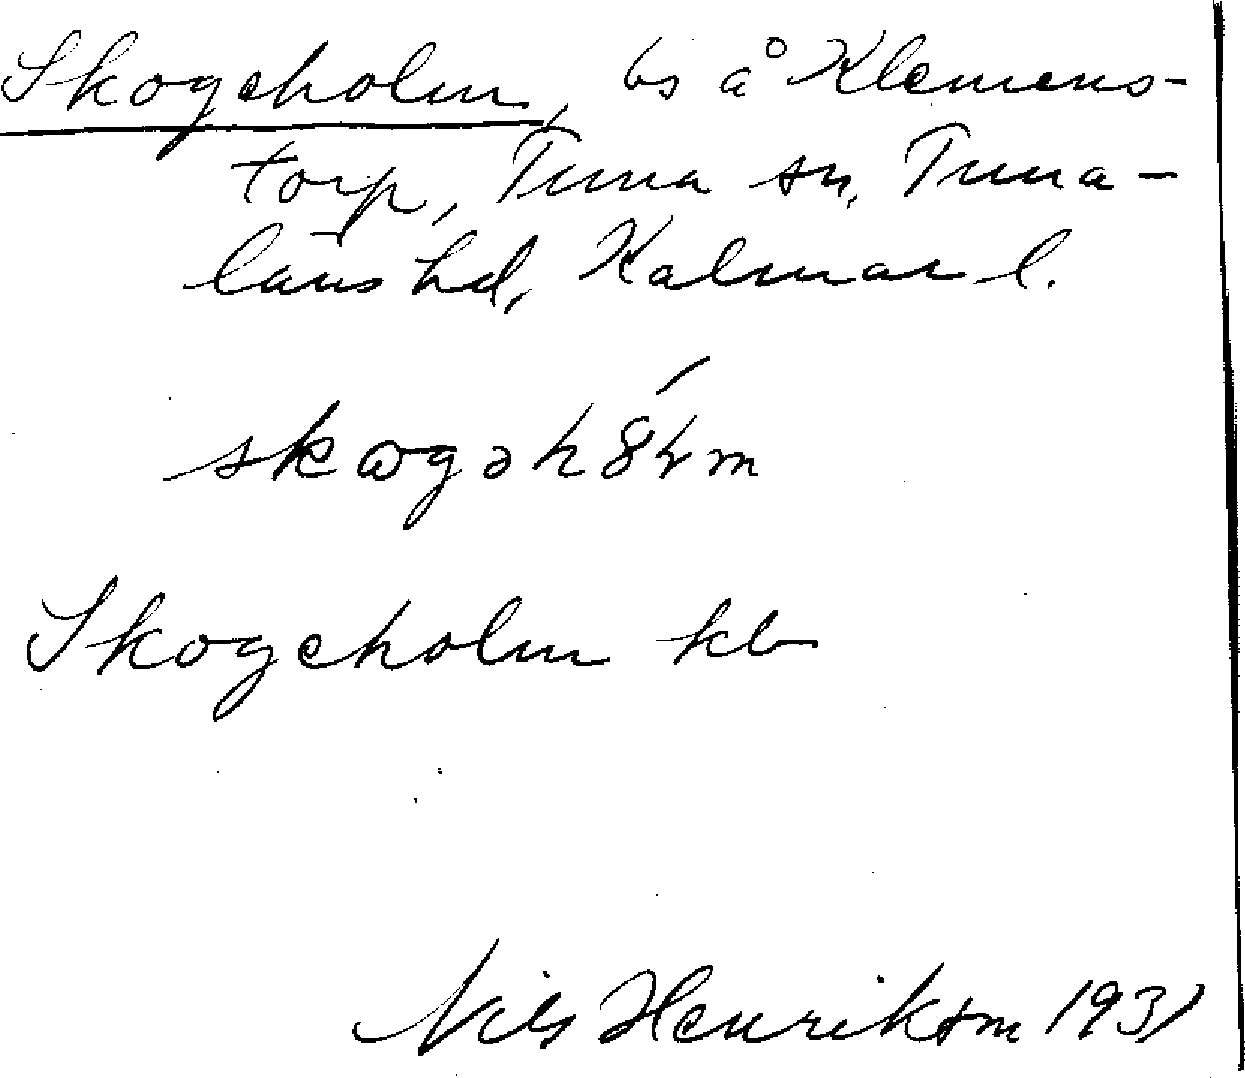 Skogeholm, bs å Klemens-
torp, Tuna sn, Tuna-
läns hd, Kalmar l.
Skogeholm kb
Nils Henrikson 1931